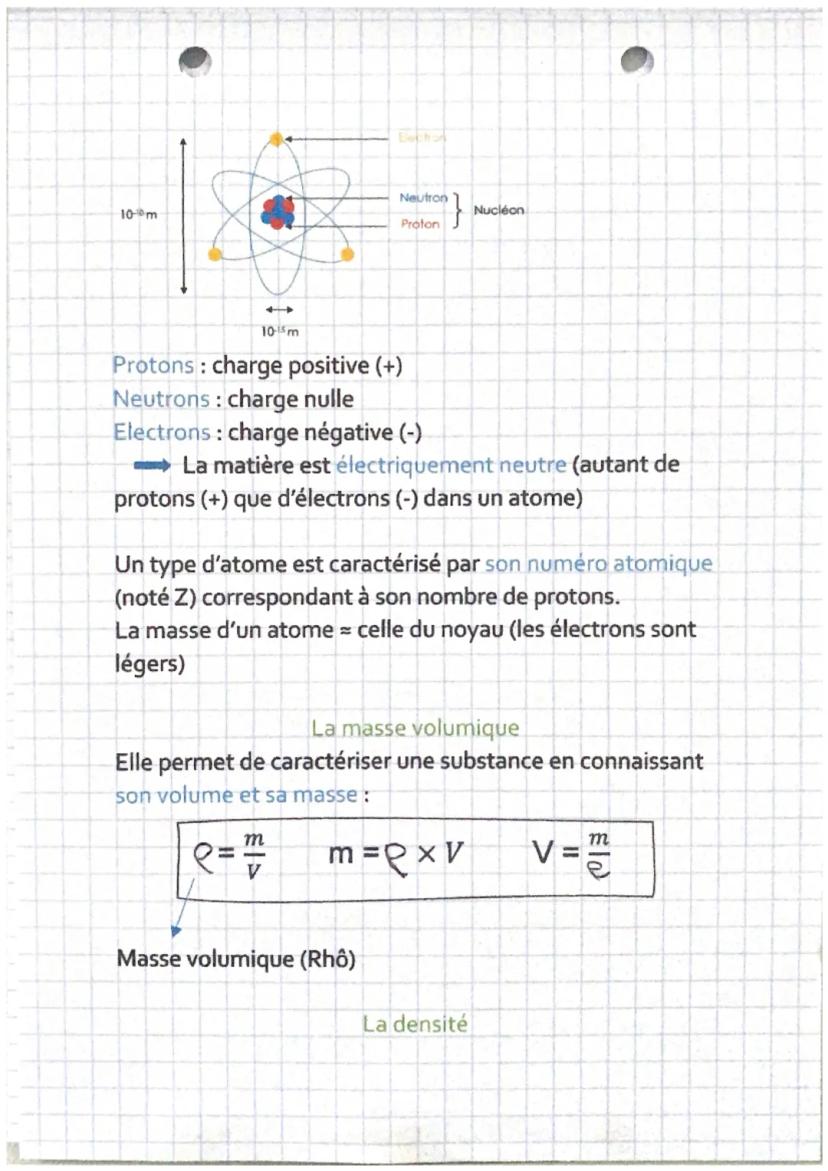 Electron
10⁻¹⁰m
Neutron
Nucléon
Proton
10⁻¹⁵m
Protons : charge positive (+)
Neutrons : charge nulle
Electrons : charge négative (-)
La matière est électriquement neutre (autant de
protons (+) que d'électrons (-) dans un atome)
Un type d'atome est caractérisé par son numéro atomique
(noté Z) correspondant à son nombre de protons.
La masse d'un atome ≈ celle du noyau (les électrons sont
légers)
La masse volumique
Elle permet de caractériser une substance en connaissant
son volume et sa masse :
ρ = m/V m = ρ × V V = m/ρ
Masse volumique (Rhô)
La densité